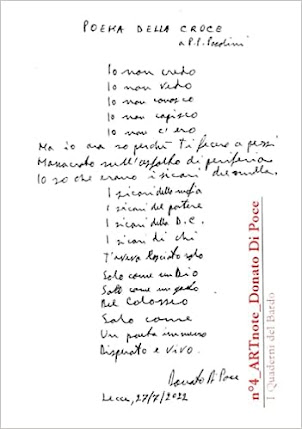 POEMA DELLA CROCE
a P.P. Pasolini
Io non credo
Io non vedo
Io non conosco
Io non capisco
Io non c'ero
Ma io ora so perché ti fecero a pezzi
Massacrato sull'asfalto di periferia
Io so che erano i sicari del nulla.
I sicari della mafia
I sicari del potere
I sicari della D.C.
I sicari di chi
T'aveva lasciato solo
Solo come un Dio
Solo come un gesto
Nel Colosseo
Solo come
Un poeta immenso
Disperato e vivo.
Donato Di Poce
Lecce, 27/7/2022
n°4_ARTnote_Donato Di Poce
I Quaderni del Bardo